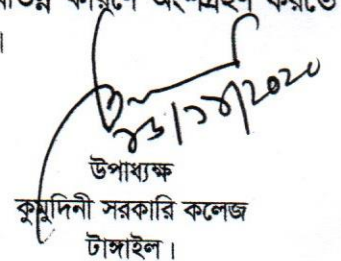 কারণে অংশগ্রহণ করতে
।
উপাধ্যক্ষ
কুমুদিনী সরকারি কলেজ
টাঙ্গাইল।